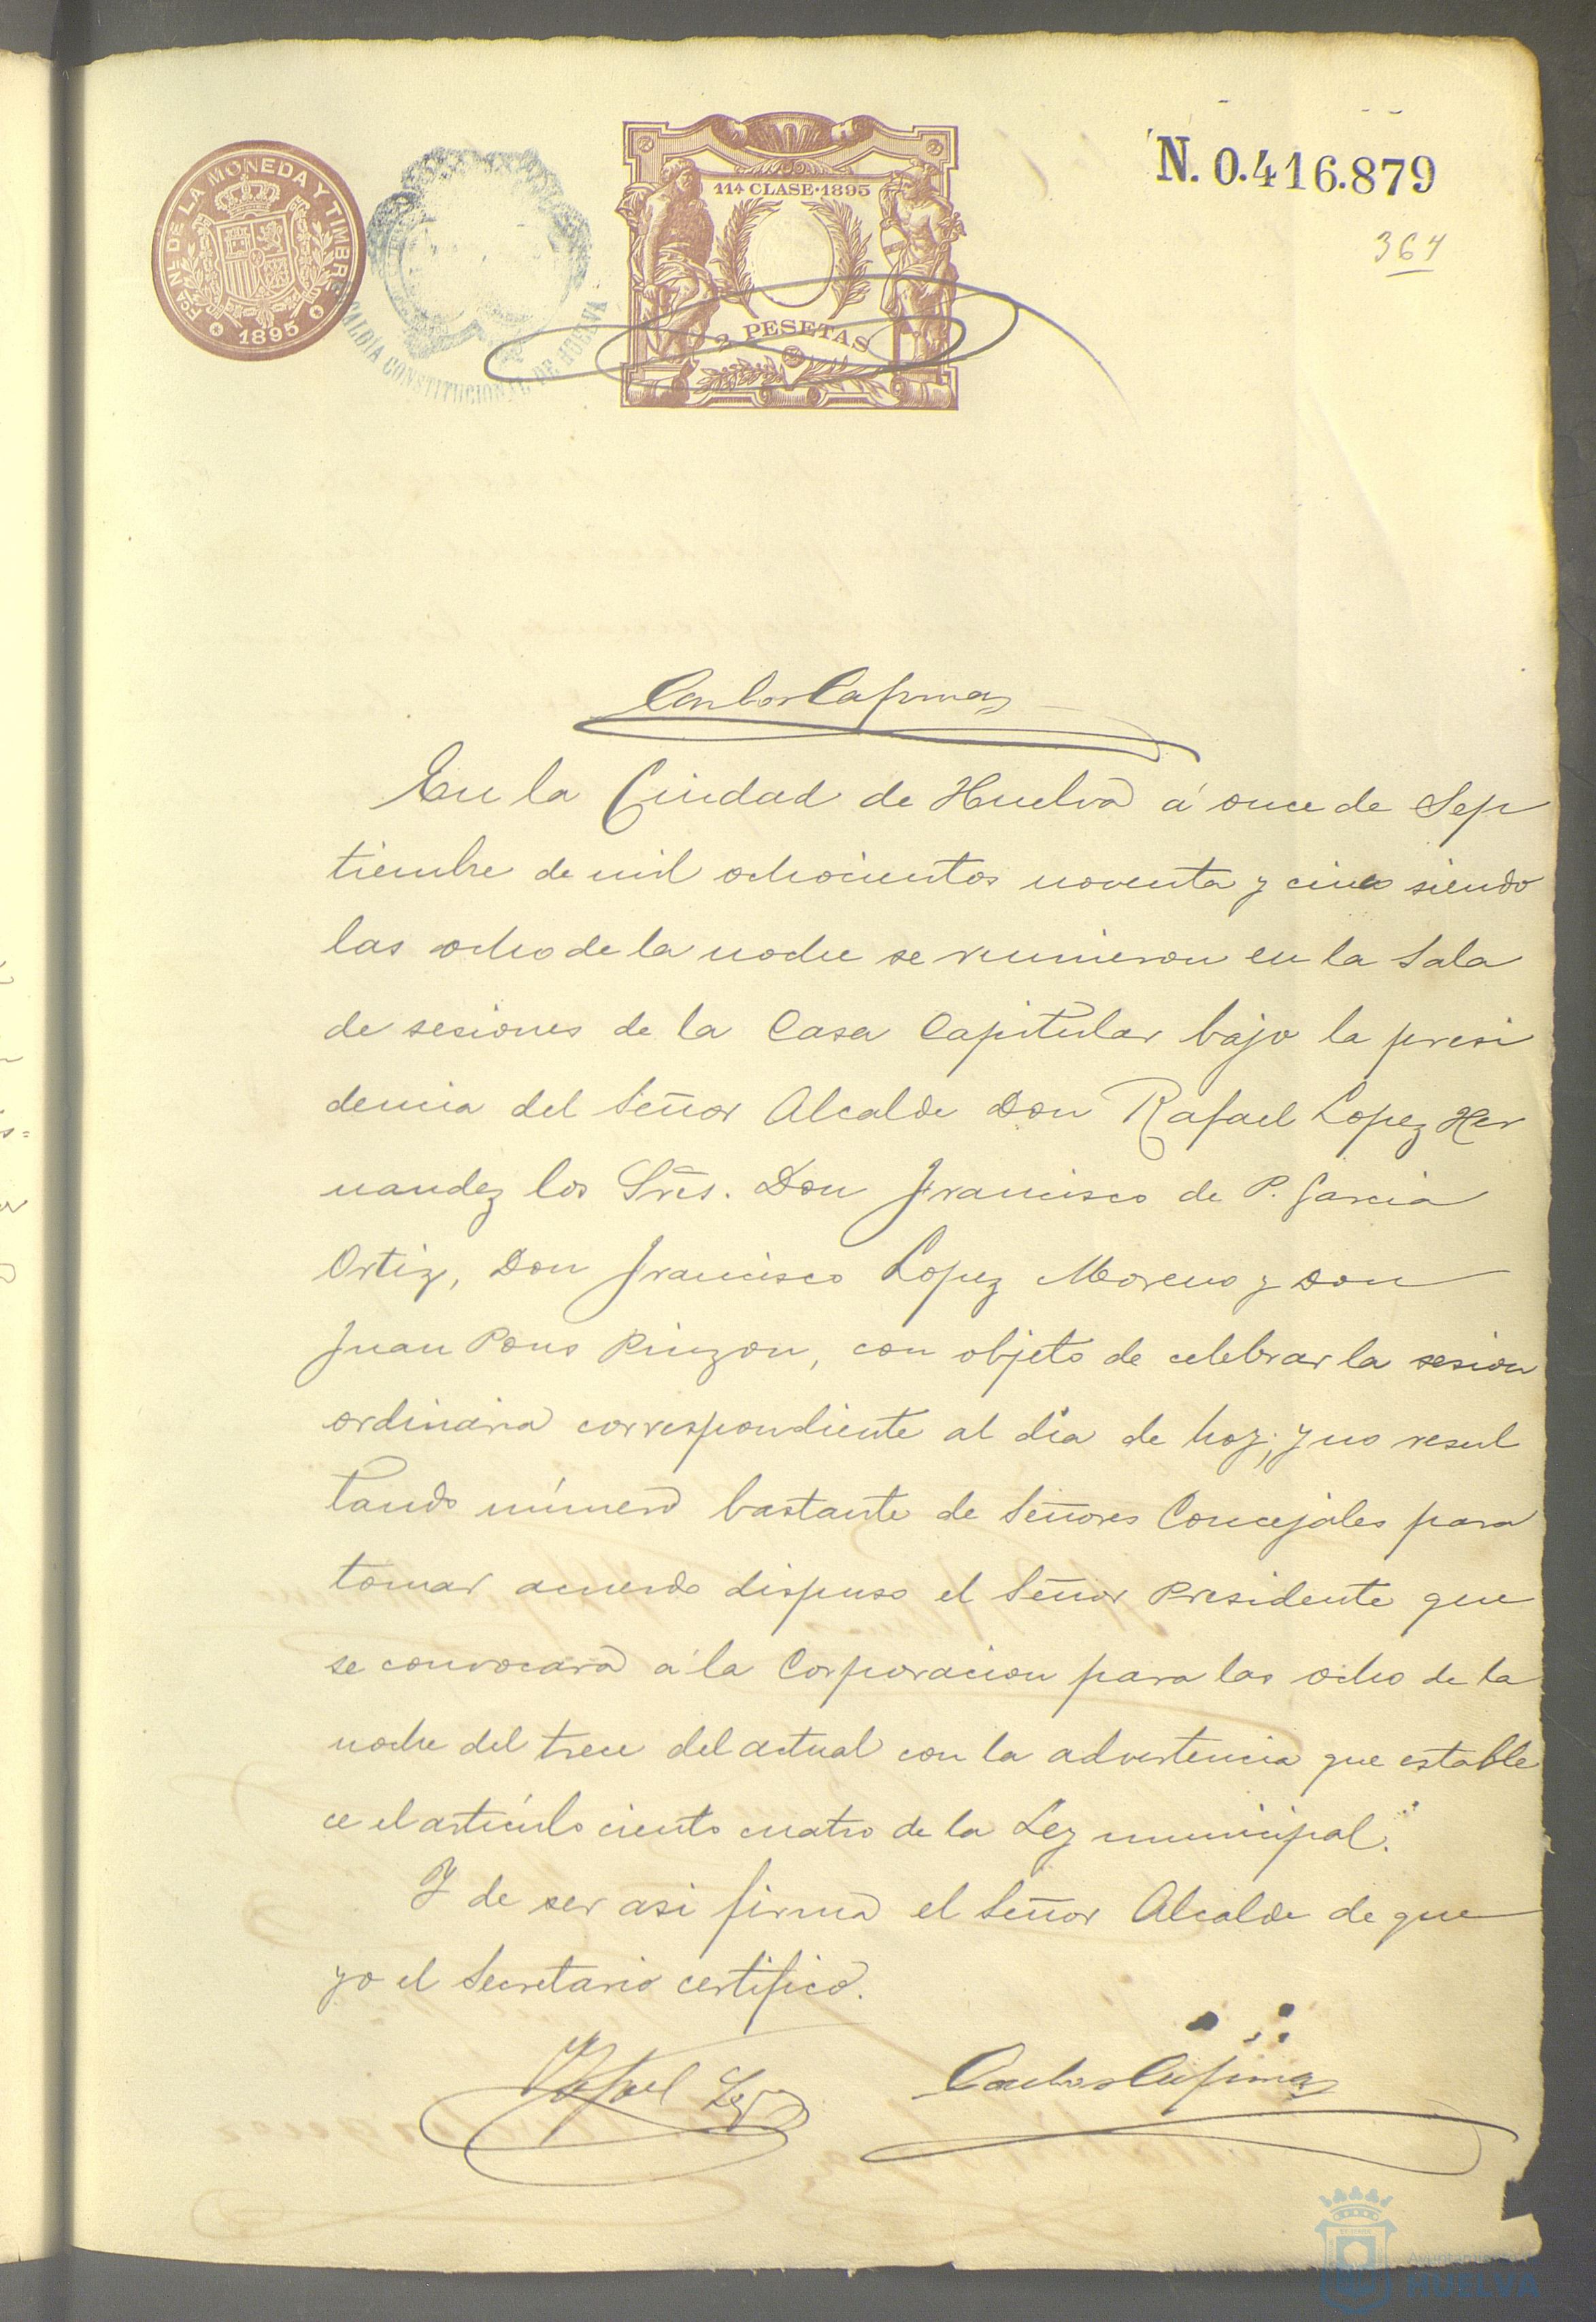 FCA NL DE LA MONEDA Y TIMBRE
1895
ALCALDIA CONSTITUCIONAL DE HUELVA
11ª CLASE·1895
2 PESETAS
N. 0.416.879
364
En la Ciudad de Huelva á once de Sep
tiembre de mil ochocientos noventa y cinco siendo
las ocho de la noche se reunieron en la Sala
de sesiones de la Casa Capitular bajo la presi
dencia del Señor Alcalde Don Rafael Lopez Her
nandez los Sres. Don Francisco de P. Garcia
Ortiz, Don Francisco Lopez Moreno y Don
Juan Pons Pinzon, con objeto de celebrar la sesion
ordinaria correspondiente al dia de hoy; y no resul
tando número bastante de Señores Concejales para
tomar acuerdo dispuso el Señor Presidente que
se convocara á la Corporacion para las ocho de la
noche del trece del actual con la advertencia que estable
ce el artículo ciento cuatro de la Ley municipal.
Y de ser asi firma el Señor Alcalde de que
yo el Secretario certifico.
Rafael Lopez
HUELVA